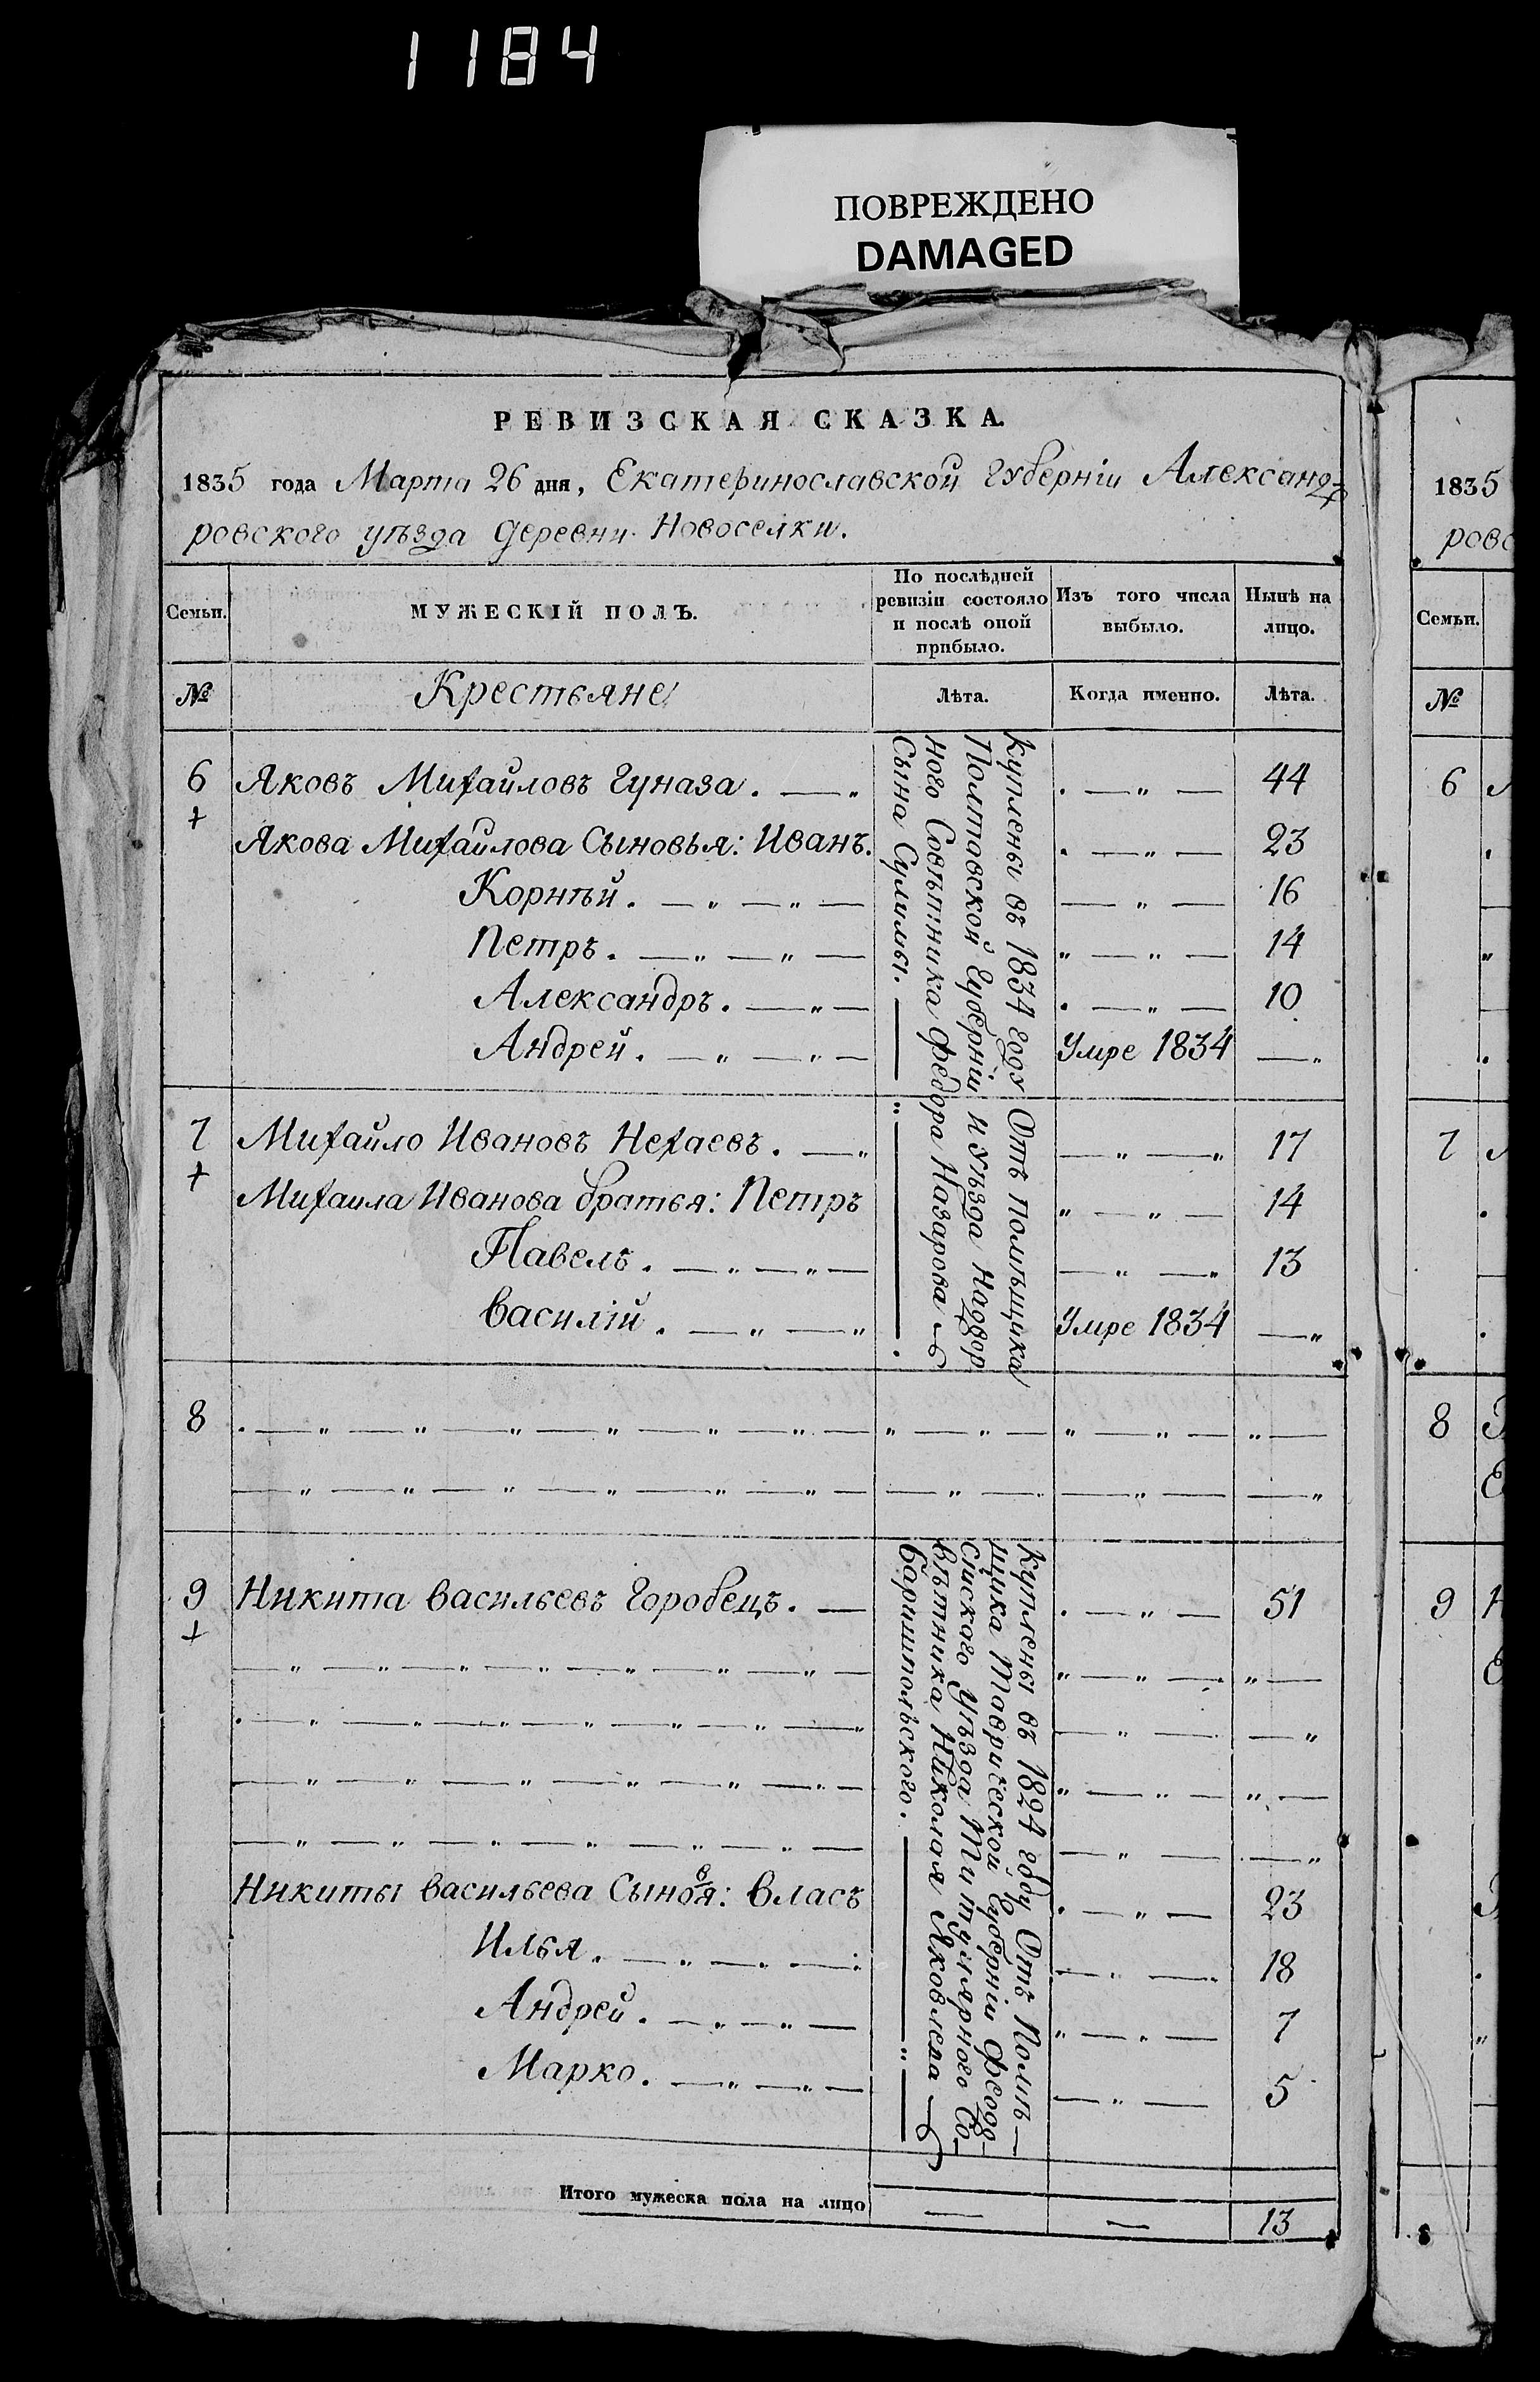 1184
ПОВРЕЖДЕНО
DAMAGED
РЕВИЗСКАЯ СКАЗКА.
1835 года Марта 26 дня, Екатеринославской Губерніи Александ-
ровского уѣзда деревни Новоселки.
Семьи. МУЖЕСКІЙ ПОЛЪ. По послѣдней ревизіи состояло и послѣ оной прибыло. Изъ того числа выбыло. Нынѣ на лицо.
№ Крестьяне Лѣта. Когда именно. Лѣта.
6 Яковъ Михайловъ Гуназа. 44
Якова Михайлова Сыновья: Иванъ. 23
Корнѣй. 16
Петръ. 14
Александръ. 10
Андрей. Умре 1834
Куплены въ 1834 году Отъ помѣщика
Полтавской Губерніи и Уѣзда Надвор
ного Совѣтника Федора Назарова
Сына Сулимы.
7 Михайло Ивановъ Нехаевъ. 17
Михаила Иванова братья: Петръ 14
Павелъ. 13
Василій. Умре 1834
8
9 Никита Васильевъ Горобецъ. 51
Никиты Васильева Сыновя: Власъ 23
Илья. 18
Андрей. 7
Марко. 5
Куплены въ 1824 году Отъ Помѣ-
щика Таврической Губерніи Феодо-
сійскаго Уѣзда Титулярного Со-
вѣтника Николая Яковлева
Баришпольского.
Итого мужеска пола на лицо 13
1835
ровс
Семьи.
№
6
7
8
9